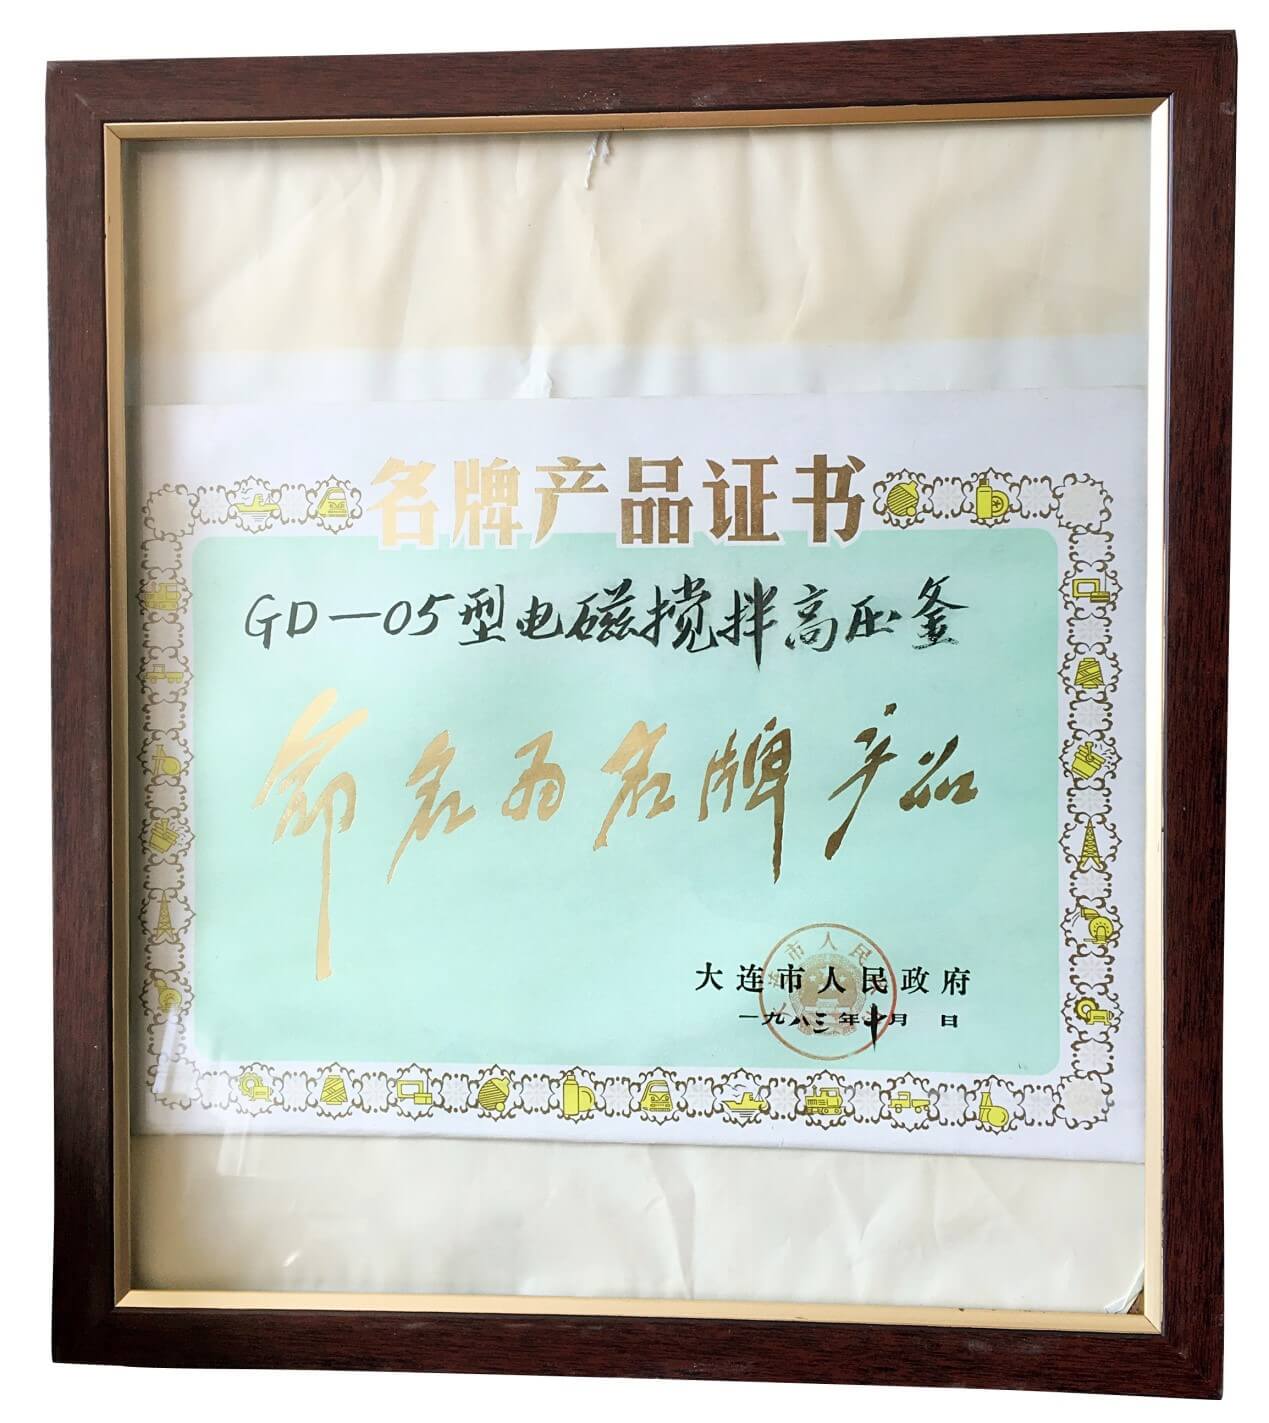 名牌产品证书
GD—05型电磁搅拌高压釜
命名为名牌产品
大连市人民政府
一九八三年十月 日